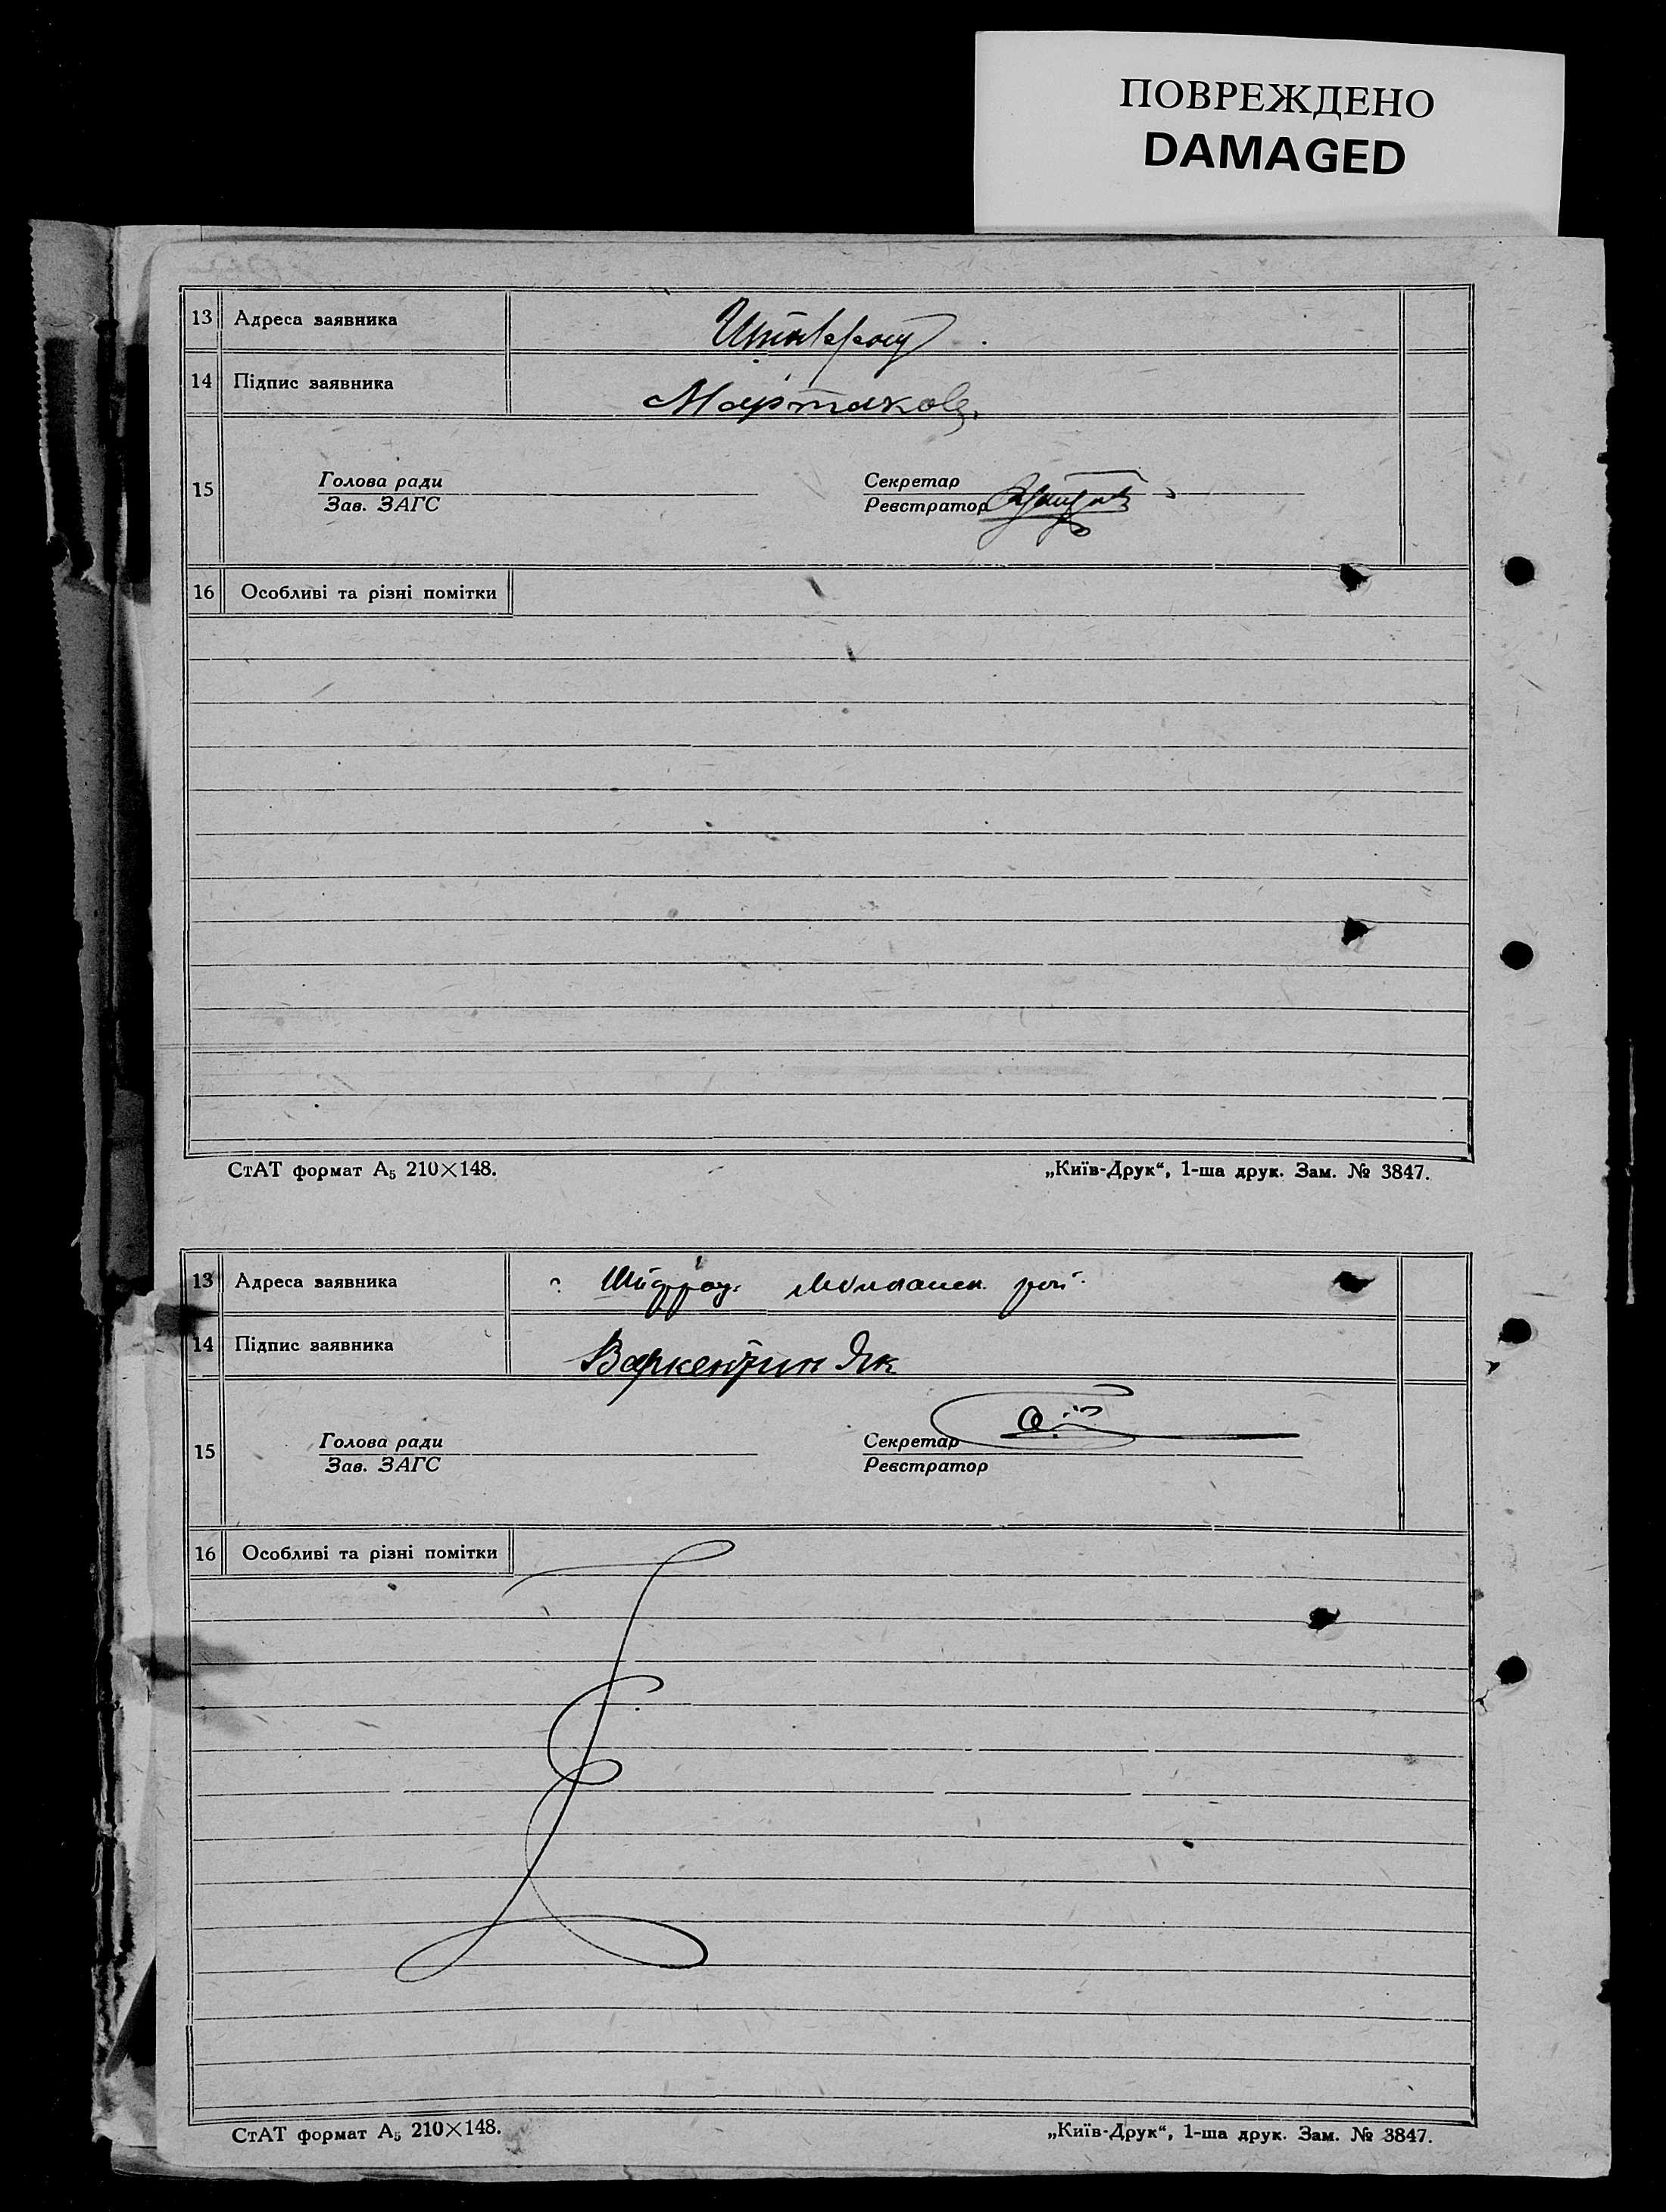 ПОВРЕЖДЕНО
DAMAGED
13 Адреса заявника
14 Підпис заявника
15 Голова ради Секретар
Зав. ЗАГС Реєстратор
16 Особливі та різні помітки
СтАТ формат А5 210×148. „Київ-Друк“, 1-ша друк. Зам. № 3847.
13 Адреса заявника
14 Підпис заявника Варкентин Як
15 Голова ради Секретар
Зав. ЗАГС Реєстратор
16 Особливі та різні помітки
СтАТ формат А5 210×148. „Київ-Друк“, 1-ша друк. Зам. № 3847.